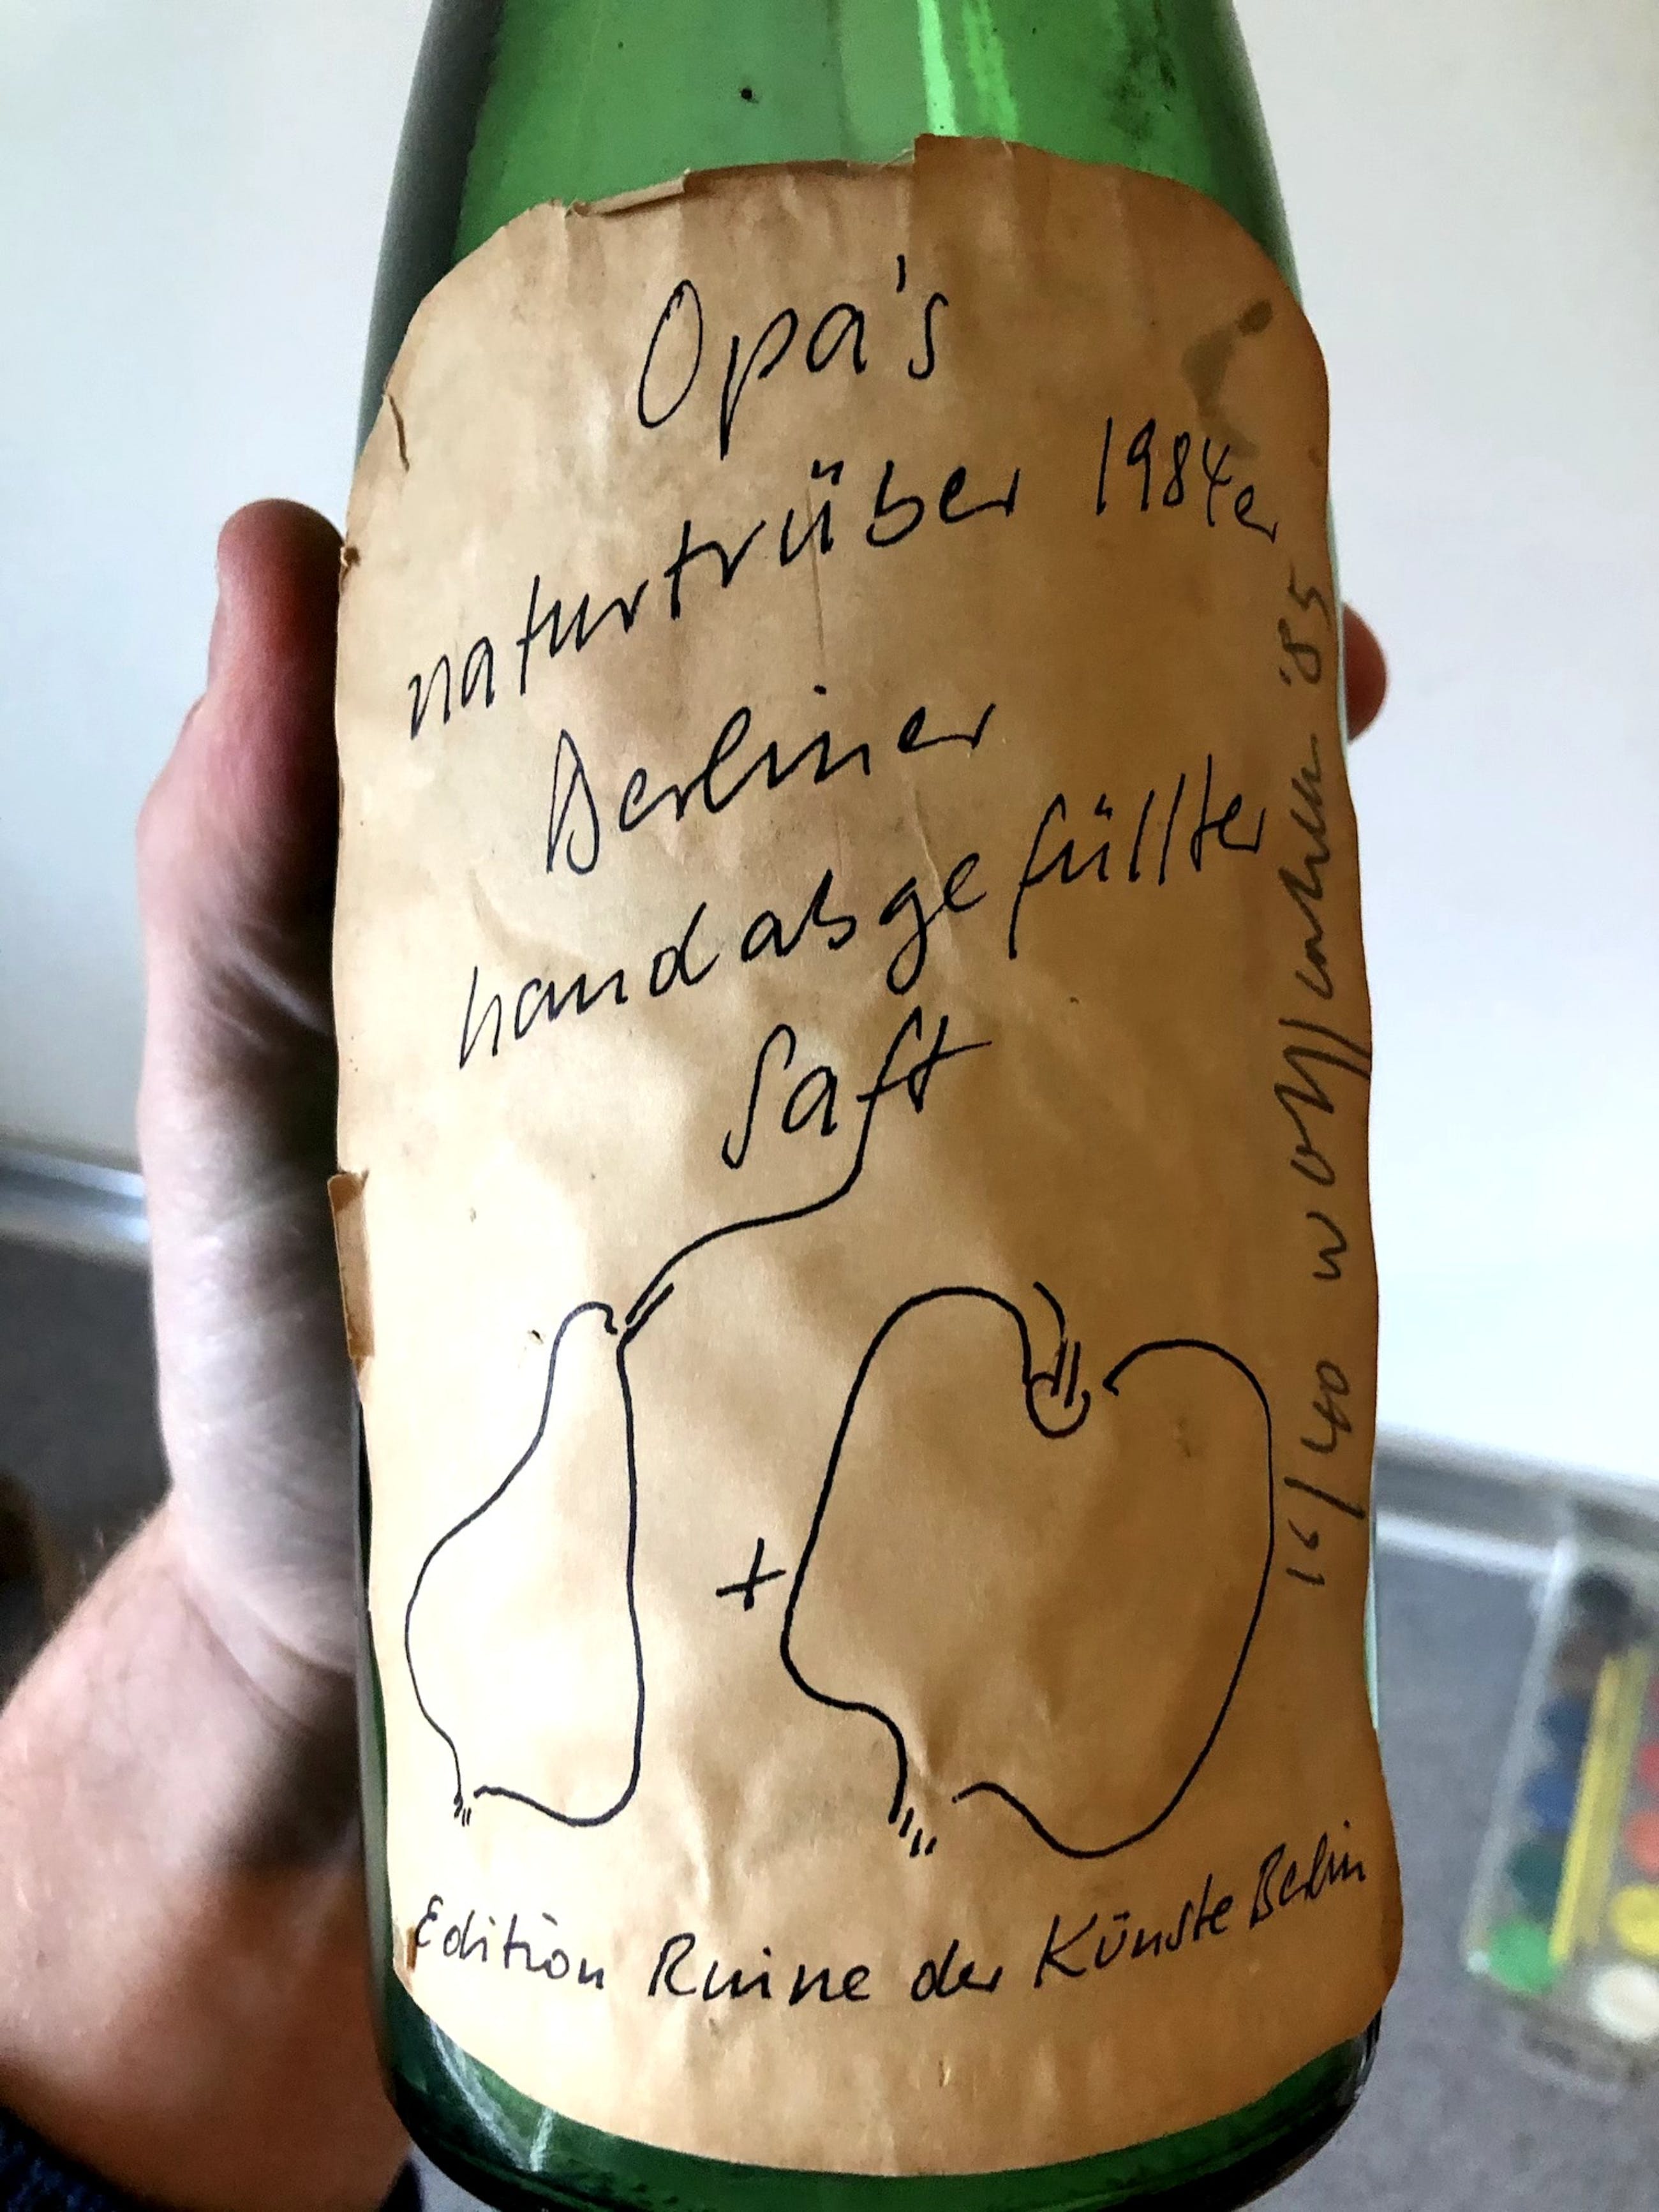 Opa's
naturtrüber 1984er
Berliner
handabgefüllter
Saft
+
Edition Ruine der Künste Berlin
16/40 '85